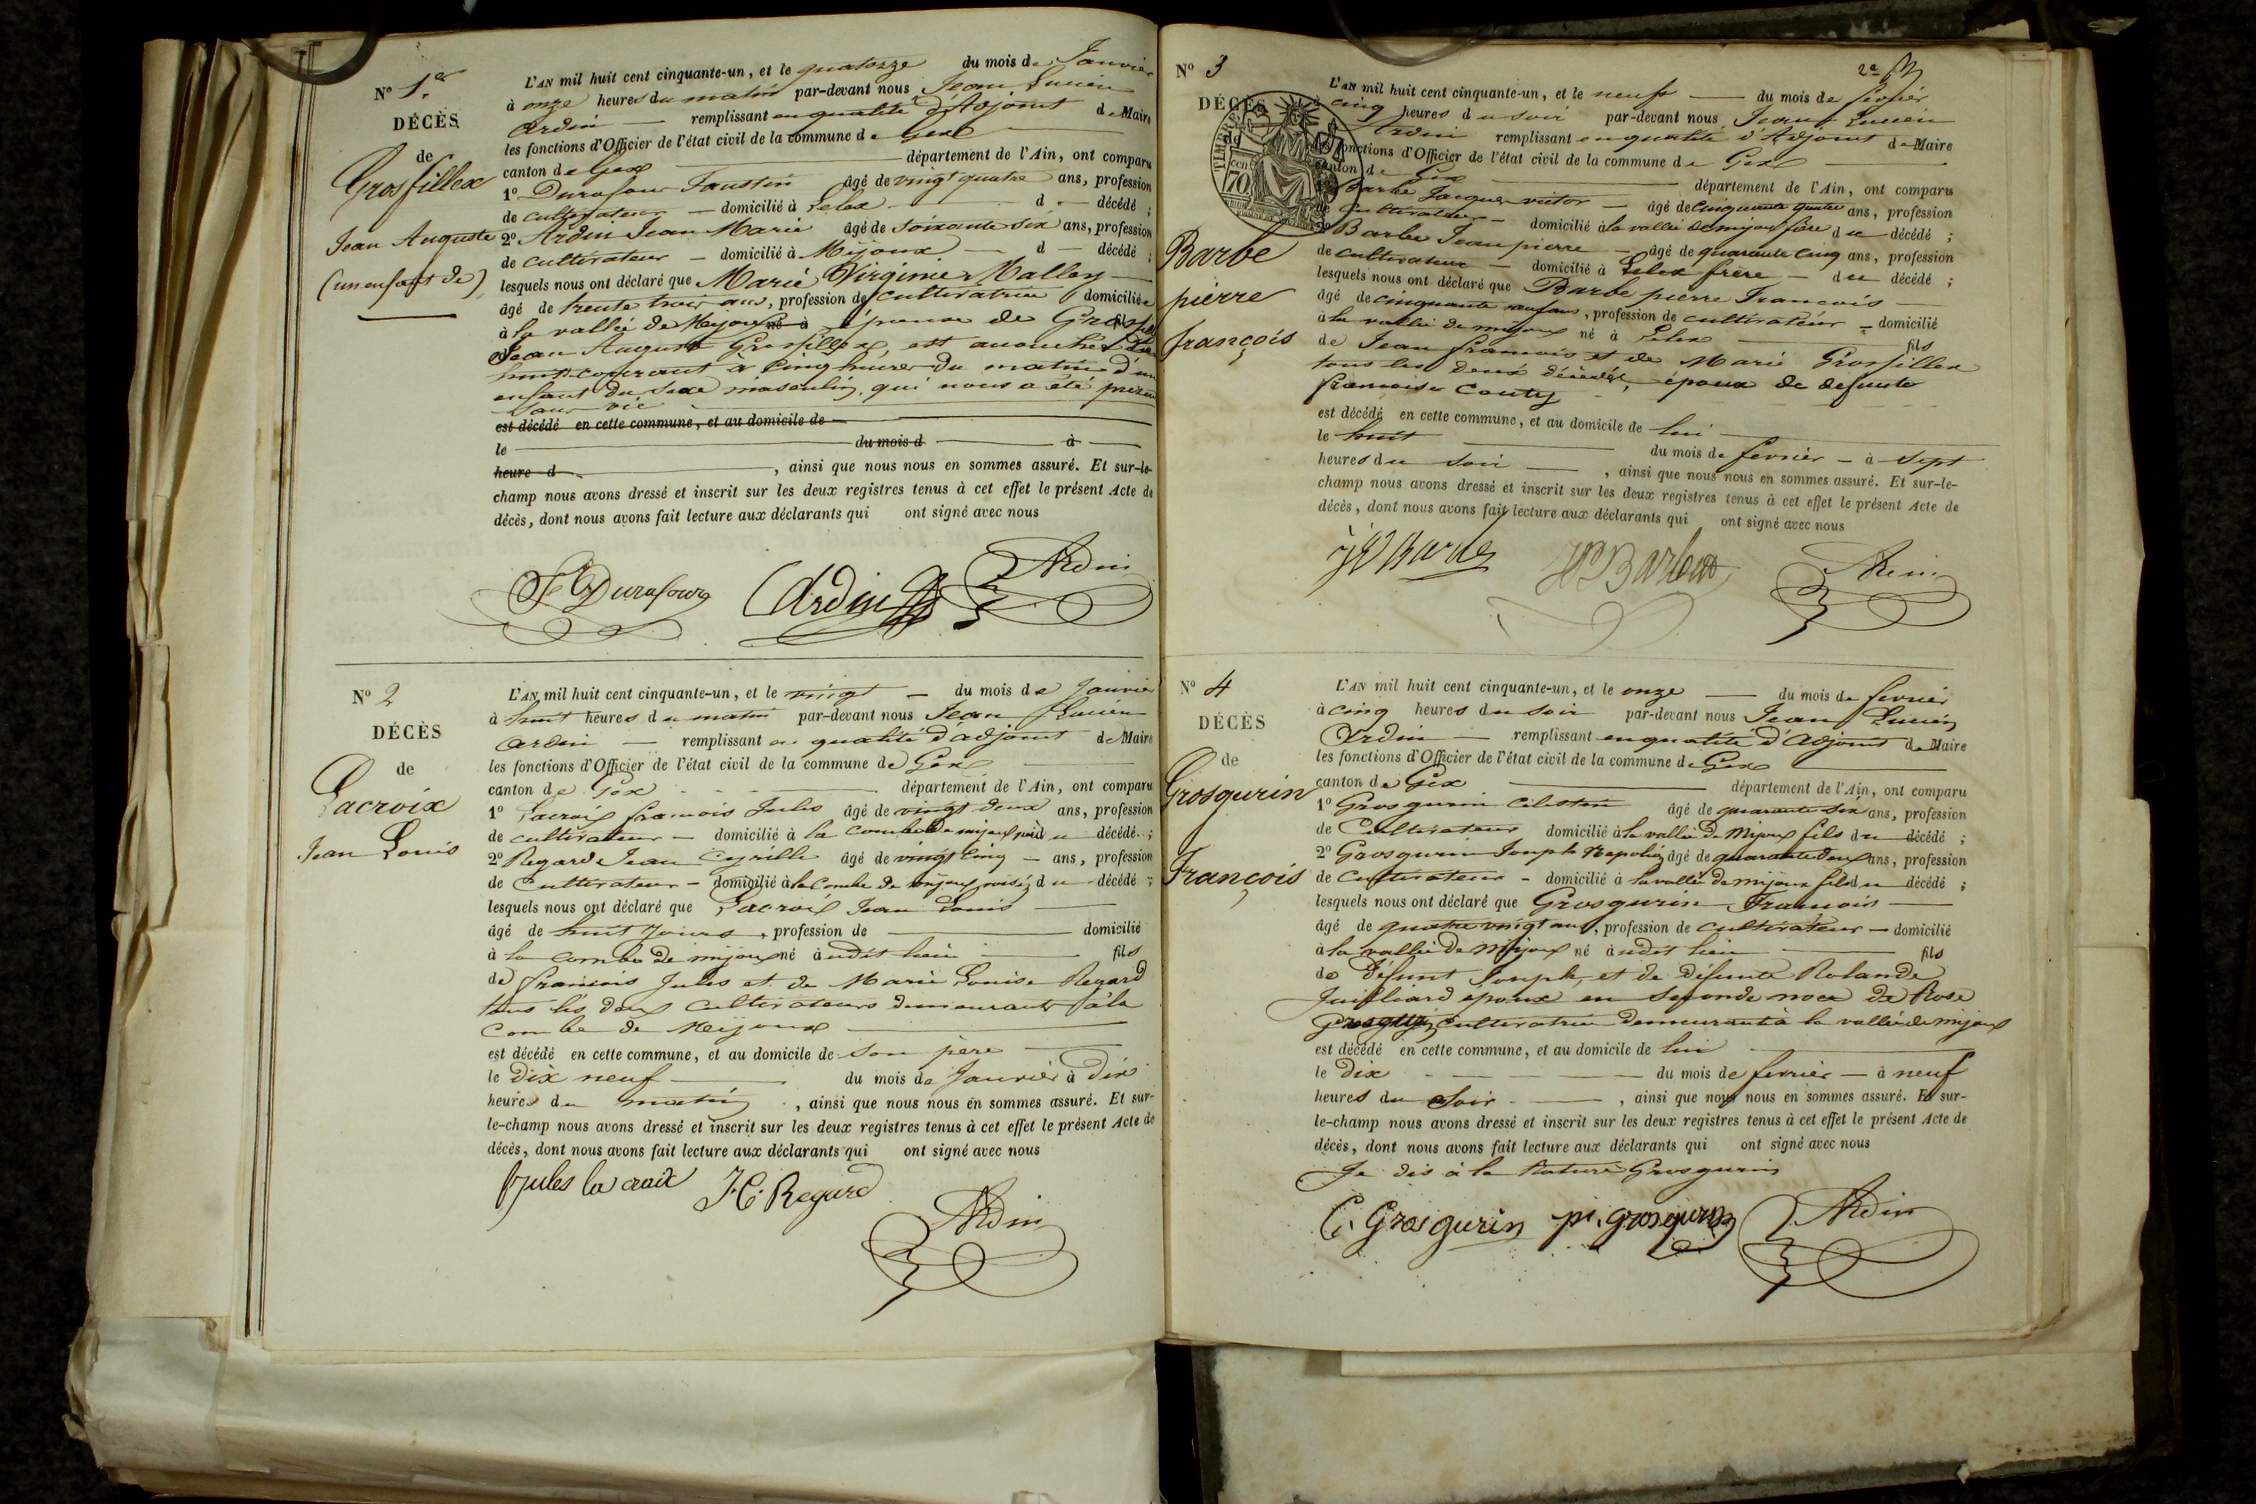 N° 1.er
DÉCÈS
de
Grosfillex
Jean Auguste
(un enfant de)
L'AN mil huit cent cinquante-un, et le quatorze du mois de Janvier
à onze heures du matin par-devant nous Jean Lucien
Ardin — remplissant en qualité d'Adjoint de Maire
les fonctions d'Officier de l'état civil de la commune de Gex
canton de Gex — département de l'Ain, ont comparu
1° Durafour Faustin âgé de vingt quatre ans, profession
de cultivateur — domicilié à Lelex — d — décédé ;
2° Ardin Jean Marie âgé de soixante six ans, profession
de cultivateur — domicilié à Mijoux — d — décédé ;
lesquels nous ont déclaré que Marie Virginie Malley
âgé de trente trois ans, profession de cultivatrice domiciliée
à la vallée de Mijoux né à épouse de
Jean Auguste Grosfillex, est accouchée
huit courant à cinq heures du matin d'un
enfant du sexe masculin, qui nous a été
sans vie
est décédé en cette commune, et au domicile de —
le — du mois d — à —
heure d — , ainsi que nous nous en sommes assuré. Et sur-le-
champ nous avons dressé et inscrit sur les deux registres tenus à cet effet le présent Acte de
décès, dont nous avons fait lecture aux déclarants qui ont signé avec nous
Durafour Ardin Ardin
N° 2
DÉCÈS
de
Lacroix
Jean Louis
L'AN mil huit cent cinquante-un, et le vingt — du mois de Janvier
à huit heures du matin par-devant nous Jean Lucien
Ardin — remplissant en qualité d'adjoint de Maire
les fonctions d'Officier de l'état civil de la commune de Gex
canton de Gex — département de l'Ain, ont comparu
1° Lacroix francois Jules âgé de vingt deux ans, profession
de cultivateur — domicilié à la combe de mijoux père du décédé ;
2° Regard Jean Cyrille âgé de vingt cinq — ans, profession
de cultivateur — domicilié à la Combe de mijoux voisin du décédé ;
lesquels nous ont déclaré que Lacroix Jean Louis —
âgé de huit jours, profession de — domicilié
à la combe de mijoux né audit lieu — fils
de francois Jules et de Marie Louise Regard
tous les deux cultivateurs demeurants à la
Combe de Mijoux —
est décédé en cette commune, et au domicile de son père —
le dix neuf — du mois de Janvier à dix
heures du matin , ainsi que nous nous en sommes assuré. Et sur-
le-champ nous avons dressé et inscrit sur les deux registres tenus à cet effet le présent Acte de
décès, dont nous avons fait lecture aux déclarants qui ont signé avec nous
fjules la croix J.C. Regard
Ardin
N° 3
DÉCÈS
TIMBRE
70
cent
2e
Barbe
pierre
françois
L'AN mil huit cent cinquante-un, et le neuf — du mois de février
à cinq heures du soir par-devant nous Jean Lucien
Ardin remplissant en qualité d'Adjoint de Maire
les fonctions d'Officier de l'état civil de la commune de Gex —
canton de Gex — département de l'Ain, ont comparu
Barbe Jacques victor — âgé de cinquante quatre ans, profession
de cultivateur — domicilié à la vallée de mijoux frère du décédé ;
2° Barbe Jean pierre — âgé de quarante cinq ans, profession
de cultivateur — domicilié à Lelex frère — du décédé ;
lesquels nous ont déclaré que Barbe pierre Francois —
âgé de cinquante neuf ans, profession de cultivateur — domicilié
à la vallée de mijoux né à Lelex — fils
de Jean francois et de Marie Grosfillex
tous les deux décédés, époux de defunte
francoise Couty
est décédé en cette commune, et au domicile de lui —
le huit — du mois de fevrier — à sept
heures du soir — , ainsi que nous nous en sommes assuré. Et sur-le-
champ nous avons dressé et inscrit sur les deux registres tenus à cet effet le présent Acte de
décès, dont nous avons fait lecture aux déclarants qui ont signé avec nous
JV Barbe JP Barbe Ardin
N° 4
DÉCÈS
de
Grosgurin
François
L'AN mil huit cent cinquante-un, et le onze — du mois de fevrier
à cinq heures du soir par-devant nous Jean Lucien
Ardin — remplissant en qualité d'Adjoint de Maire
les fonctions d'Officier de l'état civil de la commune de Gex —
canton de Gex — département de l'Ain, ont comparu
1° Grosgurin Célestin âgé de quarante six ans, profession
de Cultivateur domicilié à la vallée de Mijoux fils du décédé ;
2° Grosgurin Joseph Napoléon âgé de quarante deux ans, profession
de cultivateur — domicilié à la vallée de mijoux fils du décédé ;
lesquels nous ont déclaré que Grosgurin Francois —
âgé de quatre vingt ans, profession de cultivateur — domicilié
à la vallée de Mijoux né audit lieu — fils
de défunt Joseph, et de défunte Rolande
Juilliard époux en seconde noce de Rose
Grosgurin cultivatrice demeurant à la vallée de mijoux
est décédé en cette commune, et au domicile de lui —
le dix — du mois de fevrier — à neuf
heures du soir — , ainsi que nous nous en sommes assuré. Et sur-
le-champ nous avons dressé et inscrit sur les deux registres tenus à cet effet le présent Acte de
décès, dont nous avons fait lecture aux déclarants qui ont signé avec nous
Je dis à la Rature Grosgurin
C. Grosgurin grosgurin Ardin